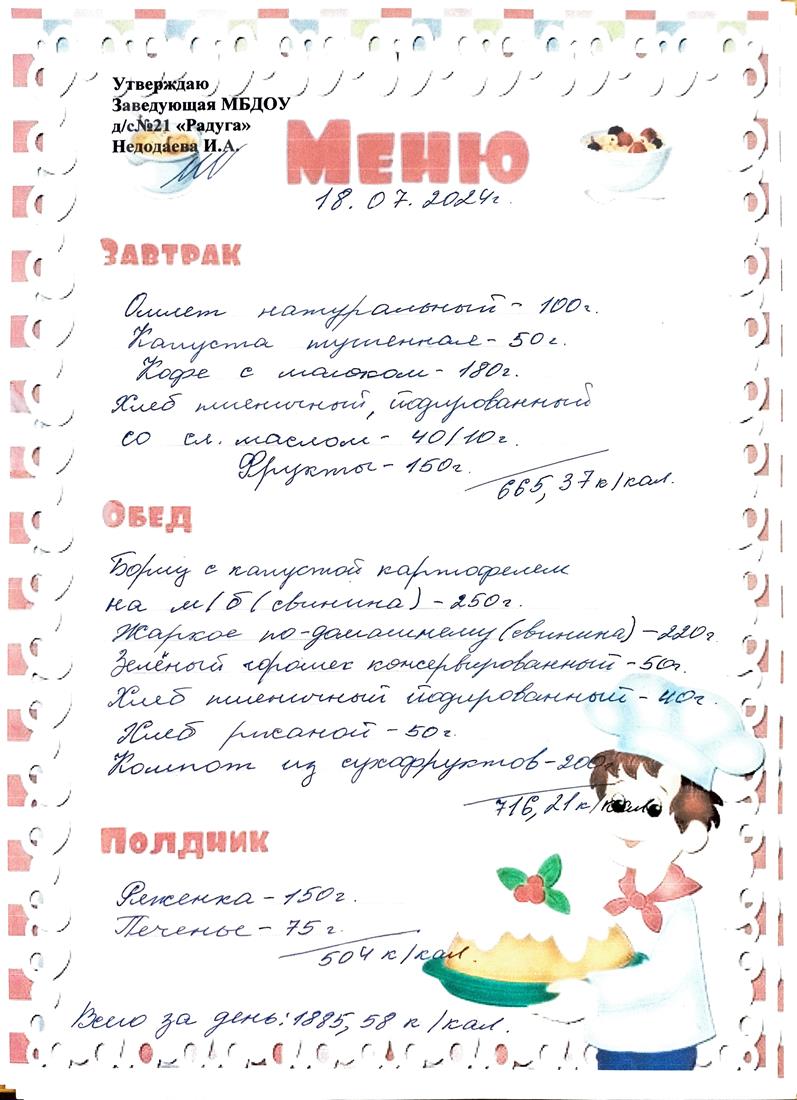 Утверждаю
Заведующая МБДОУ
д/с№21 «Радуга»
Недодаева И.А.
Меню
18.07.2024г.
Завтрак
Омлет натуральный - 100г.
Капуста тушенная - 50г.
Кофе с молоком - 180г.
Хлеб пшеничный, йодированный
со сл. маслом - 40/10г.
Фрукты - 150г.
665,37 к/кал.
Обед
Борщ с капустой картофелем
на м/б (свинина) - 250г.
Жаркое по-домашнему (свинина) - 220г.
Зелёный горошек консервированный - 50г.
Хлеб пшеничный йодированный - 40г.
Хлеб ржаной - 50г.
Компот из сухофруктов - 200г.
716,21 к/кал.
Полдник
Ряженка - 150г.
Печенье - 75г.
504 к/кал.
Всего за день: 1885,58 к/кал.